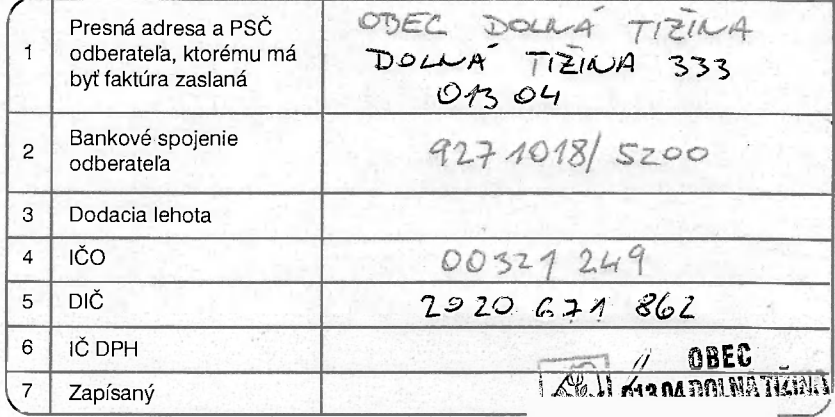 1 Presná adresa a PSČ odberateľa, ktorému má byť faktúra zaslaná
OBEC DOLNÁ TIŽINA
DOLNÁ TIŽINA 333
013 04
2 Bankové spojenie odberateľa
9271018/5200
3 Dodacia lehota
4 IČO
00321 249
5 DIČ
2920 671 862
6 IČ DPH
7 Zapísaný
OBEC
013 04 DOLNÁ TIŽINA